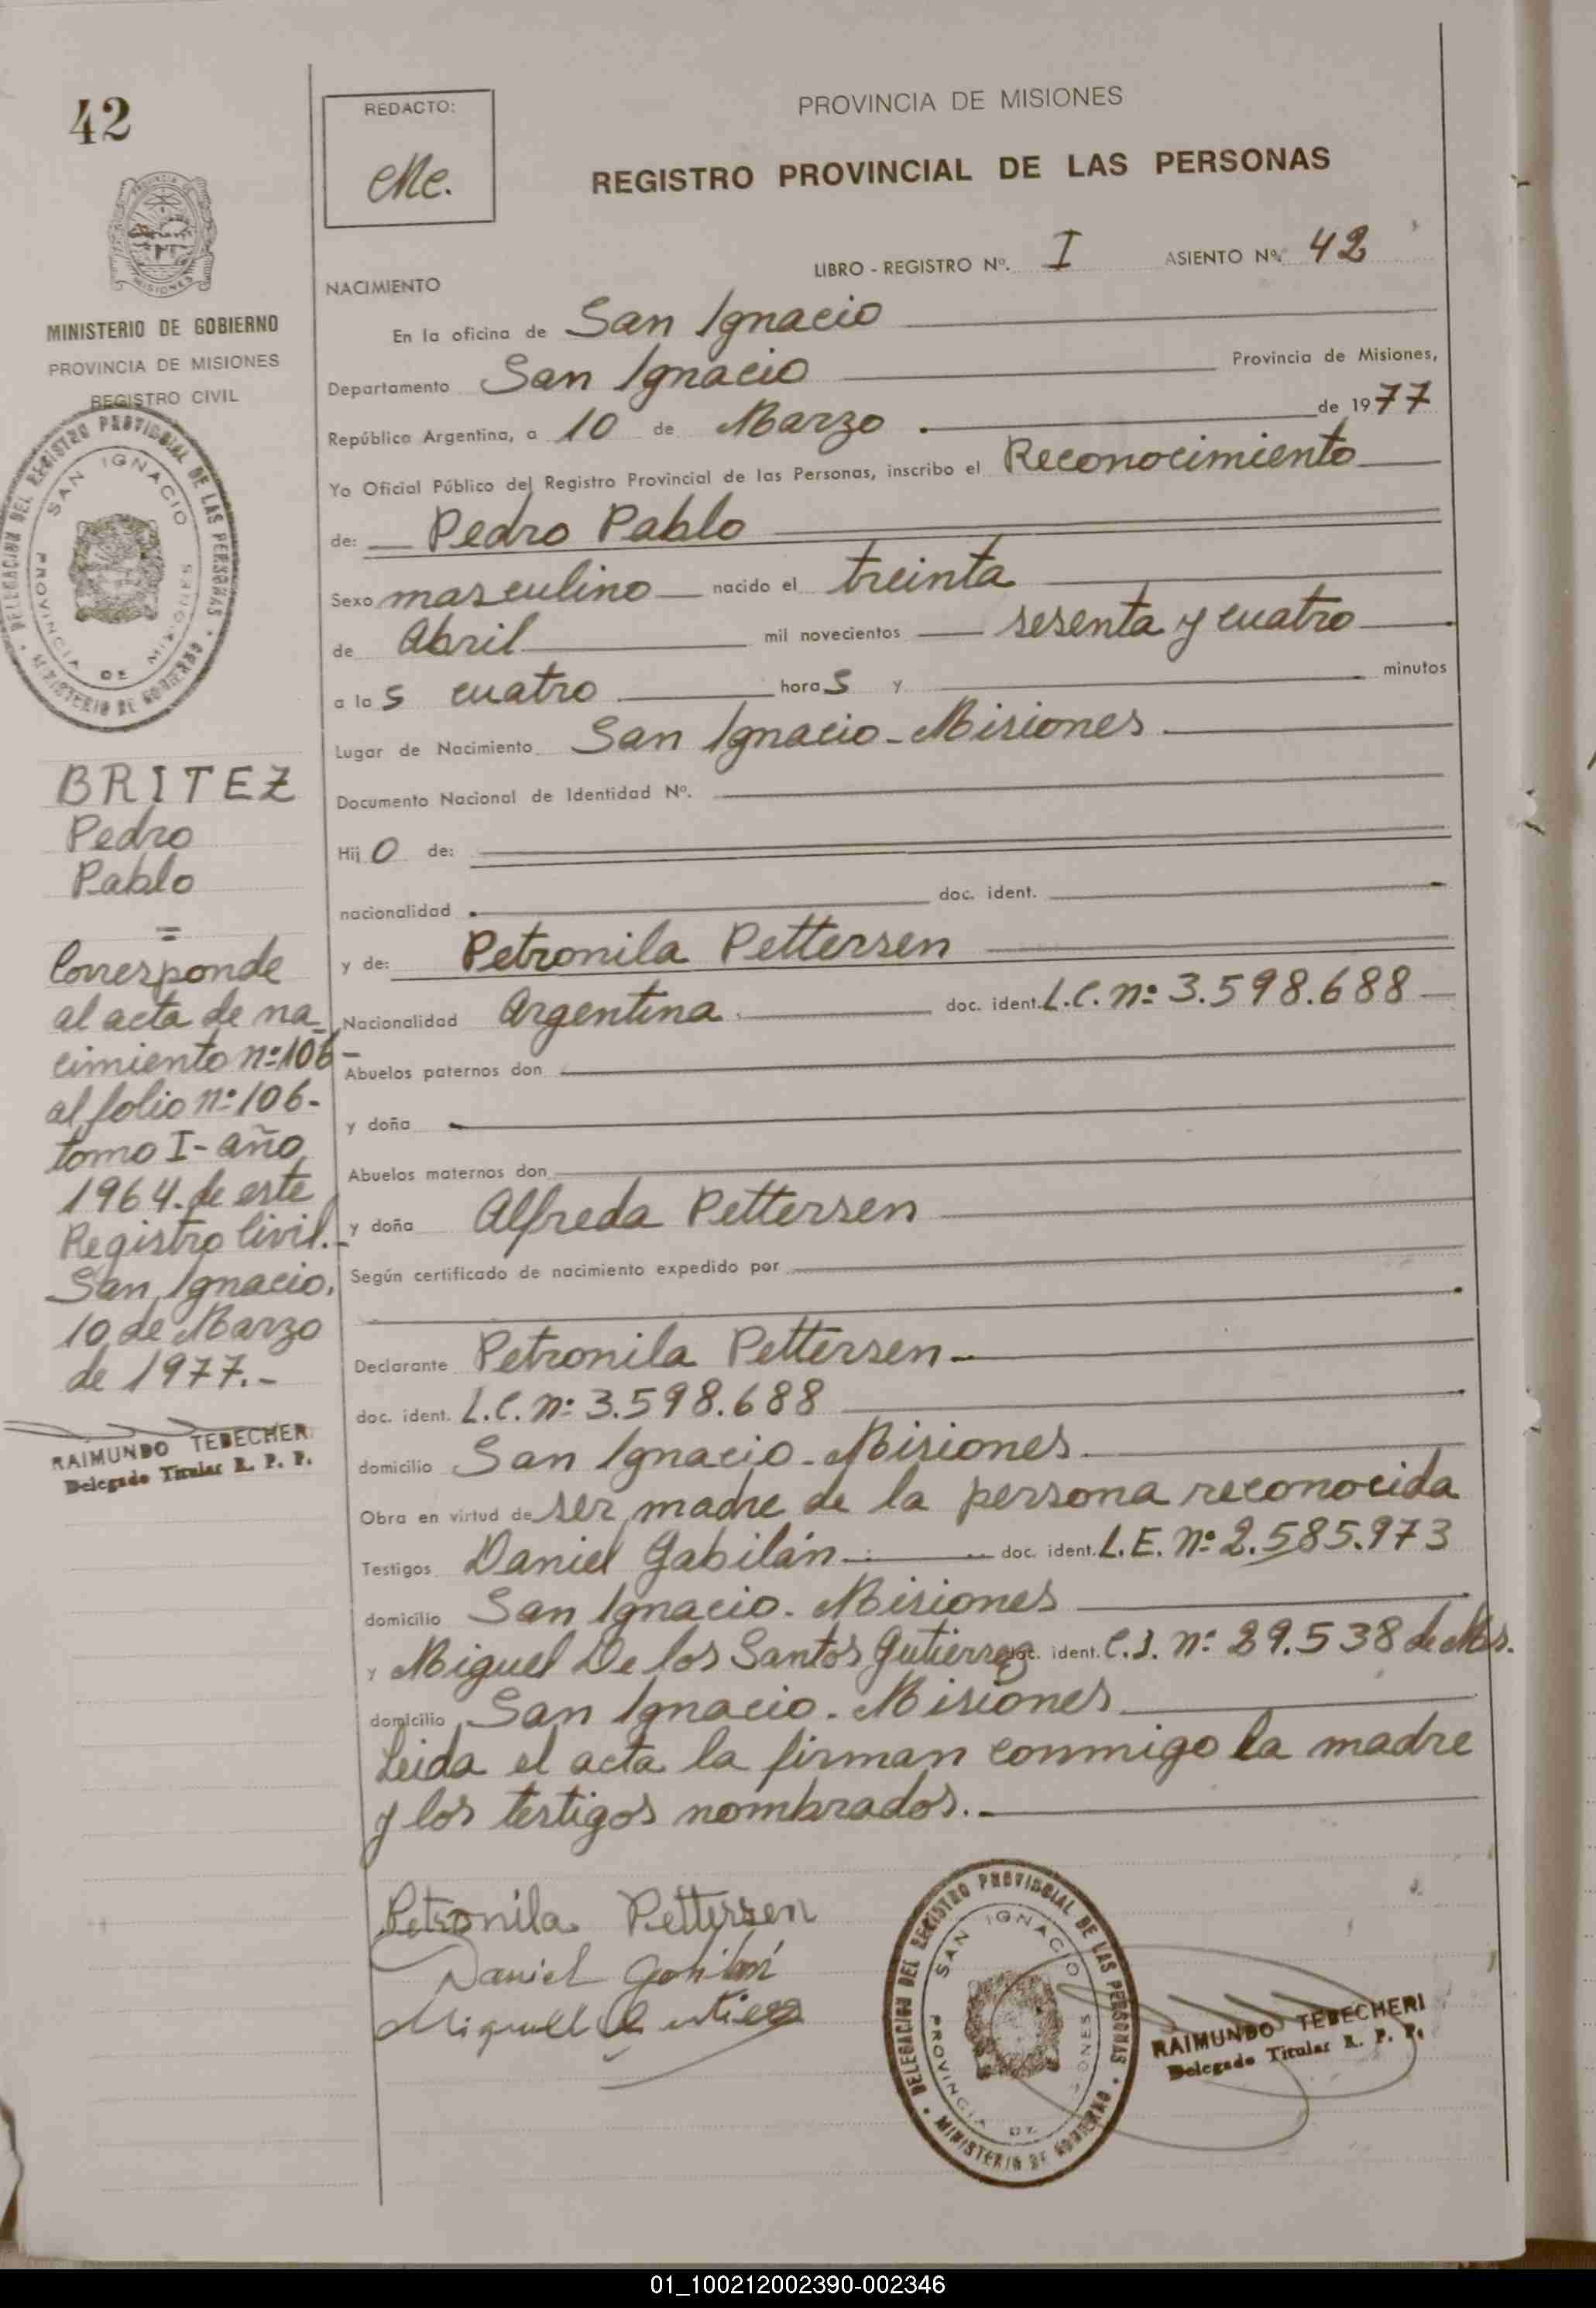 42
REDACTO:
Me.
PROVINCIA DE MISIONES
REGISTRO PROVINCIAL DE LAS PERSONAS
LIBRO - REGISTRO Nº. I ASIENTO Nº. 42
MINISTERIO DE GOBIERNO
PROVINCIA DE MISIONES
REGISTRO CIVIL
DELEGACION DEL REGISTRO PROVINCIAL DE LAS PERSONAS
MINISTERIO DE GOBIERNO
SAN IGNACIO
PROVINCIA DE MISIONES
BRITEZ
Pedro
Pablo
=
Corresponde
al acta de na_
cimiento nº 106-
al folio nº 106-
tomo I - año
1964. de este
Registro Civil.-
San Ignacio,
10 de Marzo
de 1977.-
RAIMUNDO TEBECHERI
Delegado Titular R. P. P.
NACIMIENTO
En la oficina de San Ignacio
Departamento San Ignacio Provincia de Misiones,
República Argentina, a 10 de Marzo. de 1977
Yo Oficial Público del Registro Provincial de las Personas, inscribo el Reconocimiento
de: Pedro Pablo
Sexo masculino nacido el treinta
de Abril mil novecientos sesenta y cuatro
a las cuatro horas y minutos
Lugar de Nacimiento San Ignacio - Misiones
Documento Nacional de Identidad Nº.
Hijo de:
nacionalidad doc. ident.
y de: Petronila Pettersen
Nacionalidad Argentina doc. ident. L.C. nº 3.598.688
Abuelos paternos don
y doña
Abuelos maternos don
y doña Alfreda Pettersen
Según certificado de nacimiento expedido por
Declarante Petronila Pettersen
doc. ident. L.C. nº 3.598.688
domicilio San Ignacio - Misiones
Obra en virtud de ser madre de la persona reconocida
Testigos Daniel Gabilán doc. ident. L.E. nº 2.585.973
domicilio San Ignacio. Misiones
y Miguel De los Santos Gutierrez doc. ident. C.I. nº 29.538 de Ms.
domicilio San Ignacio. Misiones
Leida el acta la firman conmigo la madre
y los testigos nombrados.-
Petronila Pettersen
Daniel Gabilan
Miguel Gutierez
DELEGACION DEL REGISTRO PROVINCIAL DE LAS PERSONAS
MINISTERIO DE GOBIERNO
SAN IGNACIO
PROVINCIA DE MISIONES
RAIMUNDO TEBECHERI
Delegado Titular R. P. P.
01_100212002390-002346